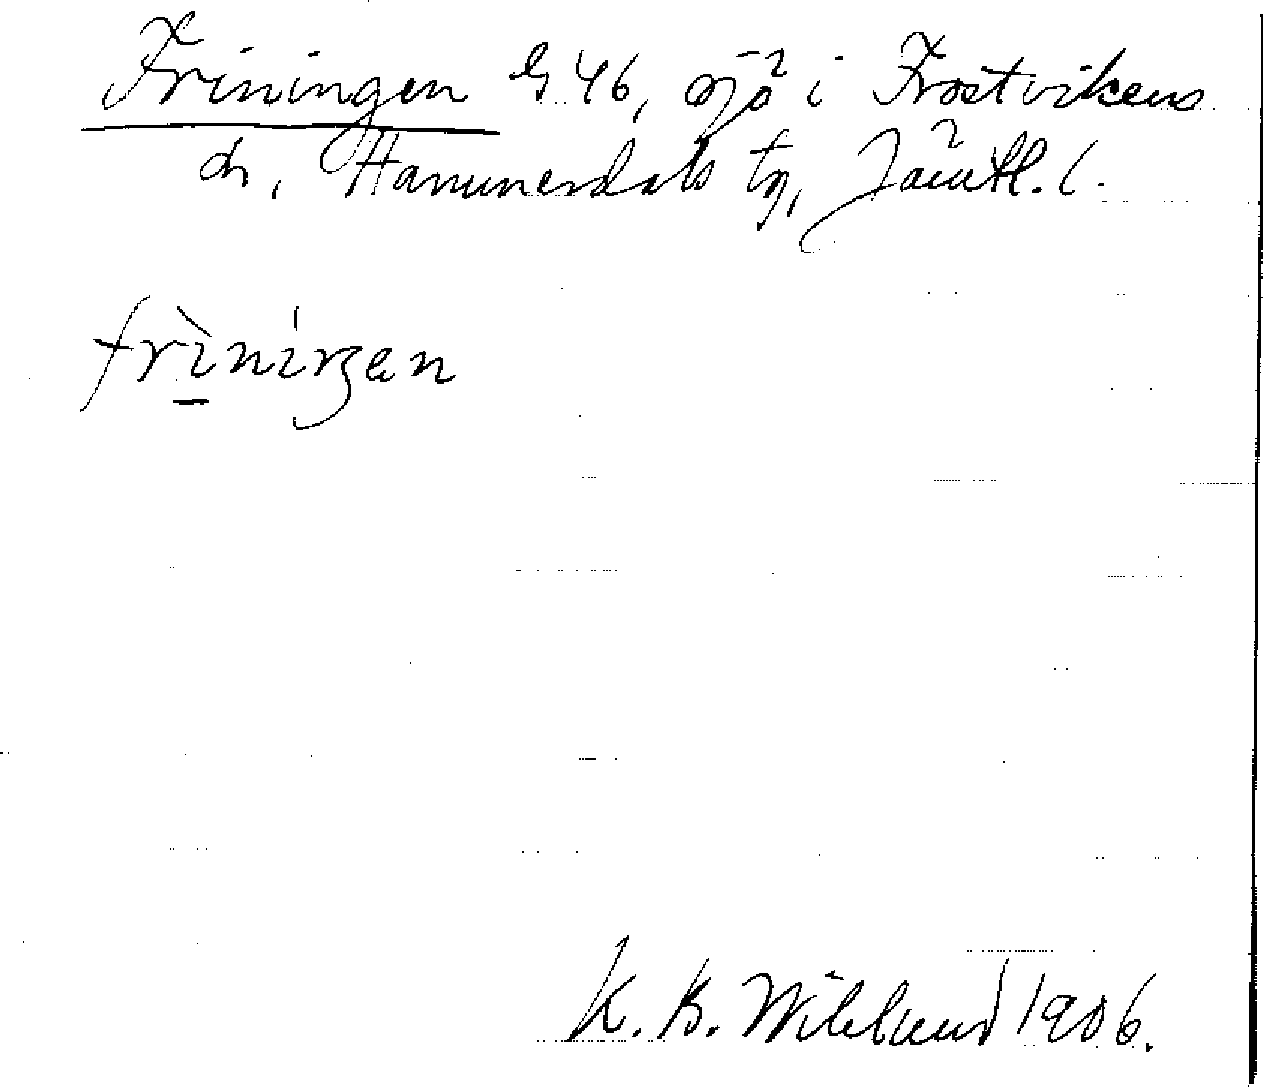 Friningen G 46, sjö i Frostvikens
sn, Hammerdals tg, Jämtl. l.
frìni̍ŋen
K. B. Wiklund 1906.